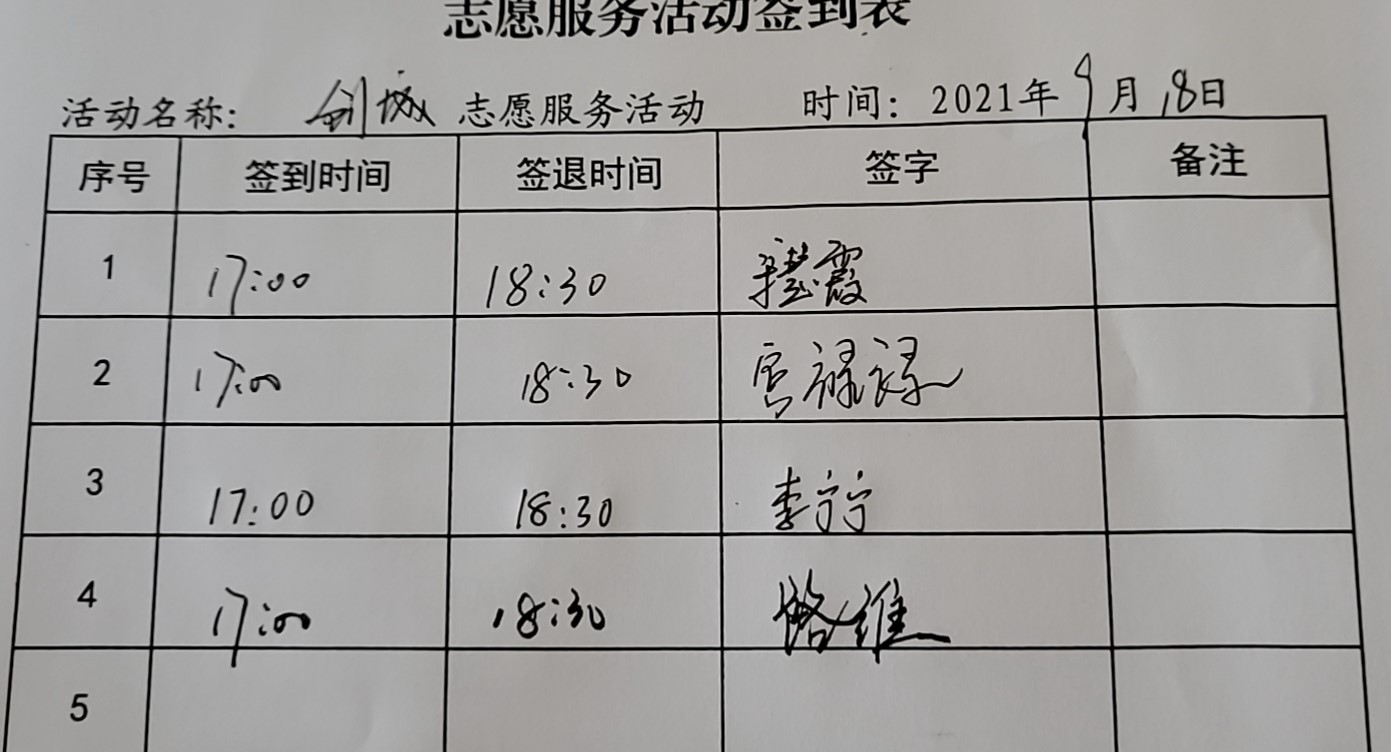 志愿服务活动签到表
活动名称: 创城 志愿服务活动 时间: 2021年9月18日
序号 签到时间 签退时间 签字 备注
1 17:00 18:30 霞
2 17:00 18:30 宫禄禄
3 17:00 18:30 李宁宁
4 17:00 18:30 维
5